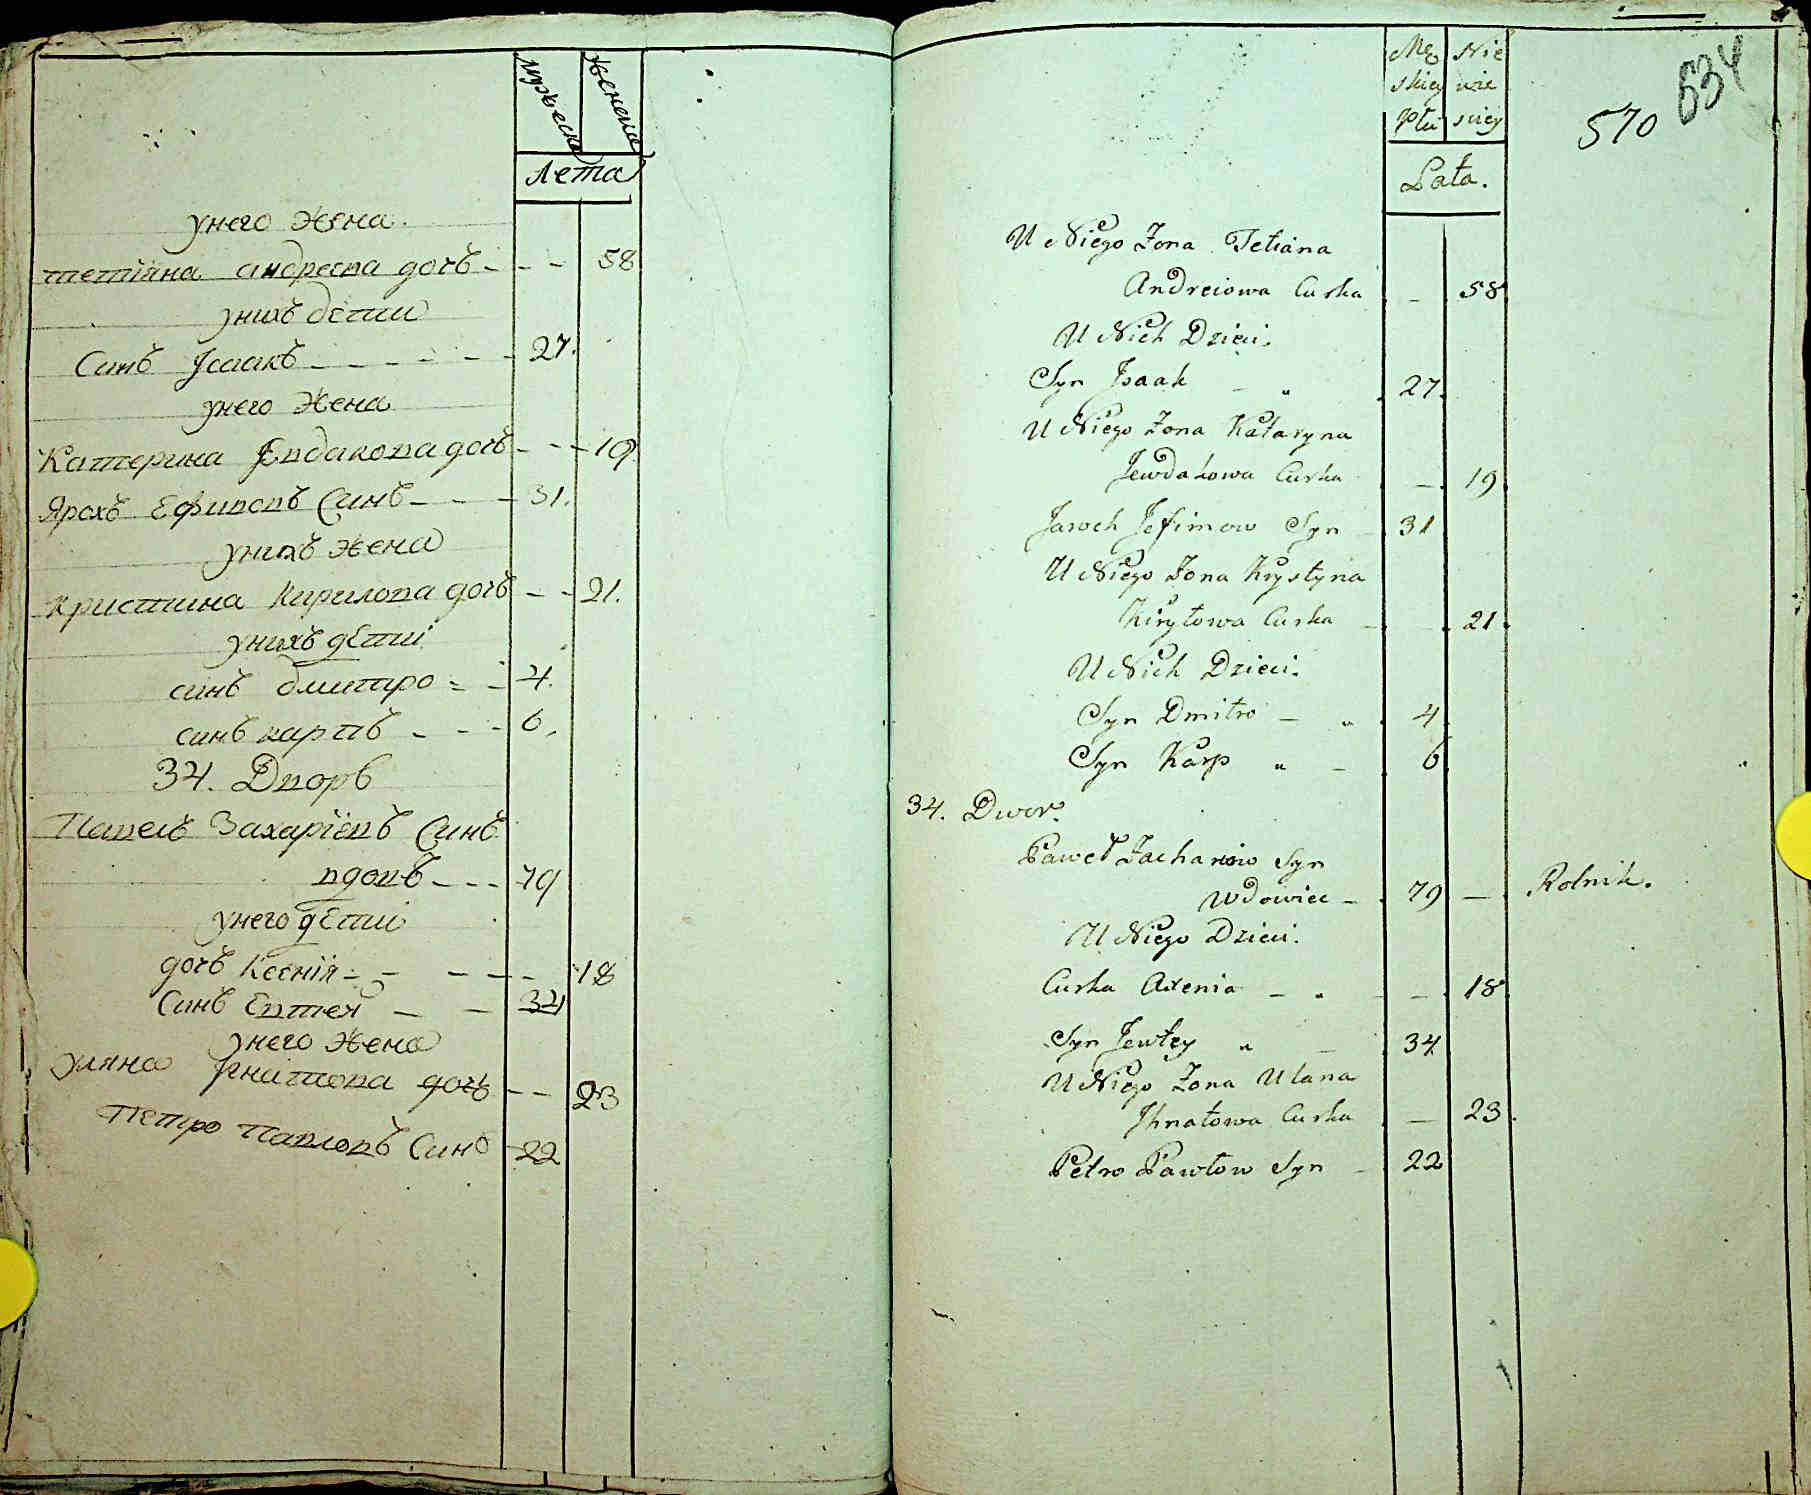 мужеска
женска
Лета
унего жена
тетіяна андреева дочъ - - - 58
унихъ дети
Синъ Јсаакъ - - - - - 27.
унего жена
Катерина Јевдакова дочъ - - - 19.
Ярохъ Ефимовъ Синъ - - - 31.
унихъ жена
кристина кирилова дочъ - - - 21.
унихъ дѣти
синъ дмитро - - 4.
синъ карпъ - - - 6.
34. Дворъ
Павелъ Захаріевъ Синъ
вдовъ - - - 79
унего дѣти
дочъ Ксенія - - - - - 18
Синъ Евтей - - 34
унего жена
уляна Ігнатова дочъ - - 23
Петро Павловъ Синъ - 22
Mę Nie
skiey wie
Płci sciey
570
634
Lata.
U Niego Żona Tetiana
Andreiowa Curka - 58
U Nich Dzieci.
Syn Isaak - " 27.
U Niego Żona Kataryna
Jewdakowa Curka - 19.
Jaroch Jefimow Syn - 31
U Niego Żona Krystyna
Kiryłowa Curka - - 21.
U Nich Dzieci.
Syn Dmitro - " 4
Syn Karp " - 6
34. Dwor.
Paweł Zachariow Syn
Wdowiec - 79 - Rolnik.
U Niego Dzieci.
Curka Axenia - " - - 18
Syn Jewtey " - 34
U Niego Żona Ulana
Ihnatowa Curka - 23.
Petro Pawłow Syn - 22